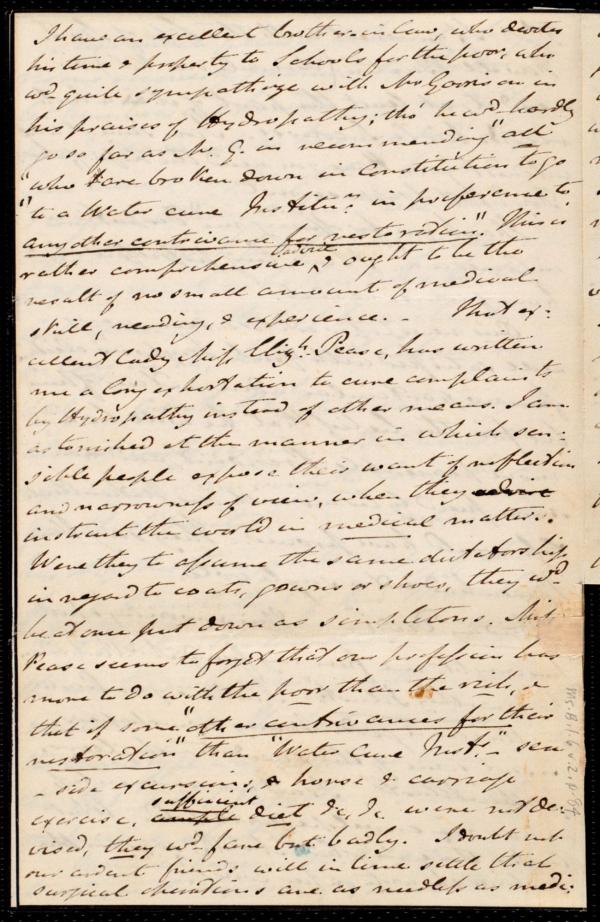 I have an excellent brother-in-law, who devotes
his time & property to Schools for the poor, who
wd quite sympathize with Mr Garrison in
his praises of Hydropathy; tho' he wd hardly
go so far as Mr. G. in recommending "all
"who have broken down in constitution to go
"to a Water cure Institun. in preference to
any other contrivance for restoration". This is
rather comprehensive advice, & ought to be the
result of no small amount of medical
skill, reading, & experience. - That ex-
cellent lady Miss Elizh. Pease, has written
me a long exhortation to cure complaints
by Hydropathy instead of other means. I am
astonished at the manner in which sen-
sible people expose their want of reflection
and narrowness of view, when they advise
instruct the world in medical matters.
Were they to assume the same dictatorship
in regard to coats, gowns or shoes, they wd
be at once put down as simpletons. Miss
Pease seems to forget that our profession has
more to do with the poor than the rich, &
that if some "other contrivances for their
restoration" than "Water Cure Insts." - sea
-side excursions, & horse & carriage
exercise, ample sufficient diet &c, &c. were not de-
vised, they wd fare but badly. I doubt not
our ardent friends will in time settle that
surgical operations are as needless as medi-
Ms. B.1.6 v.2 p.84